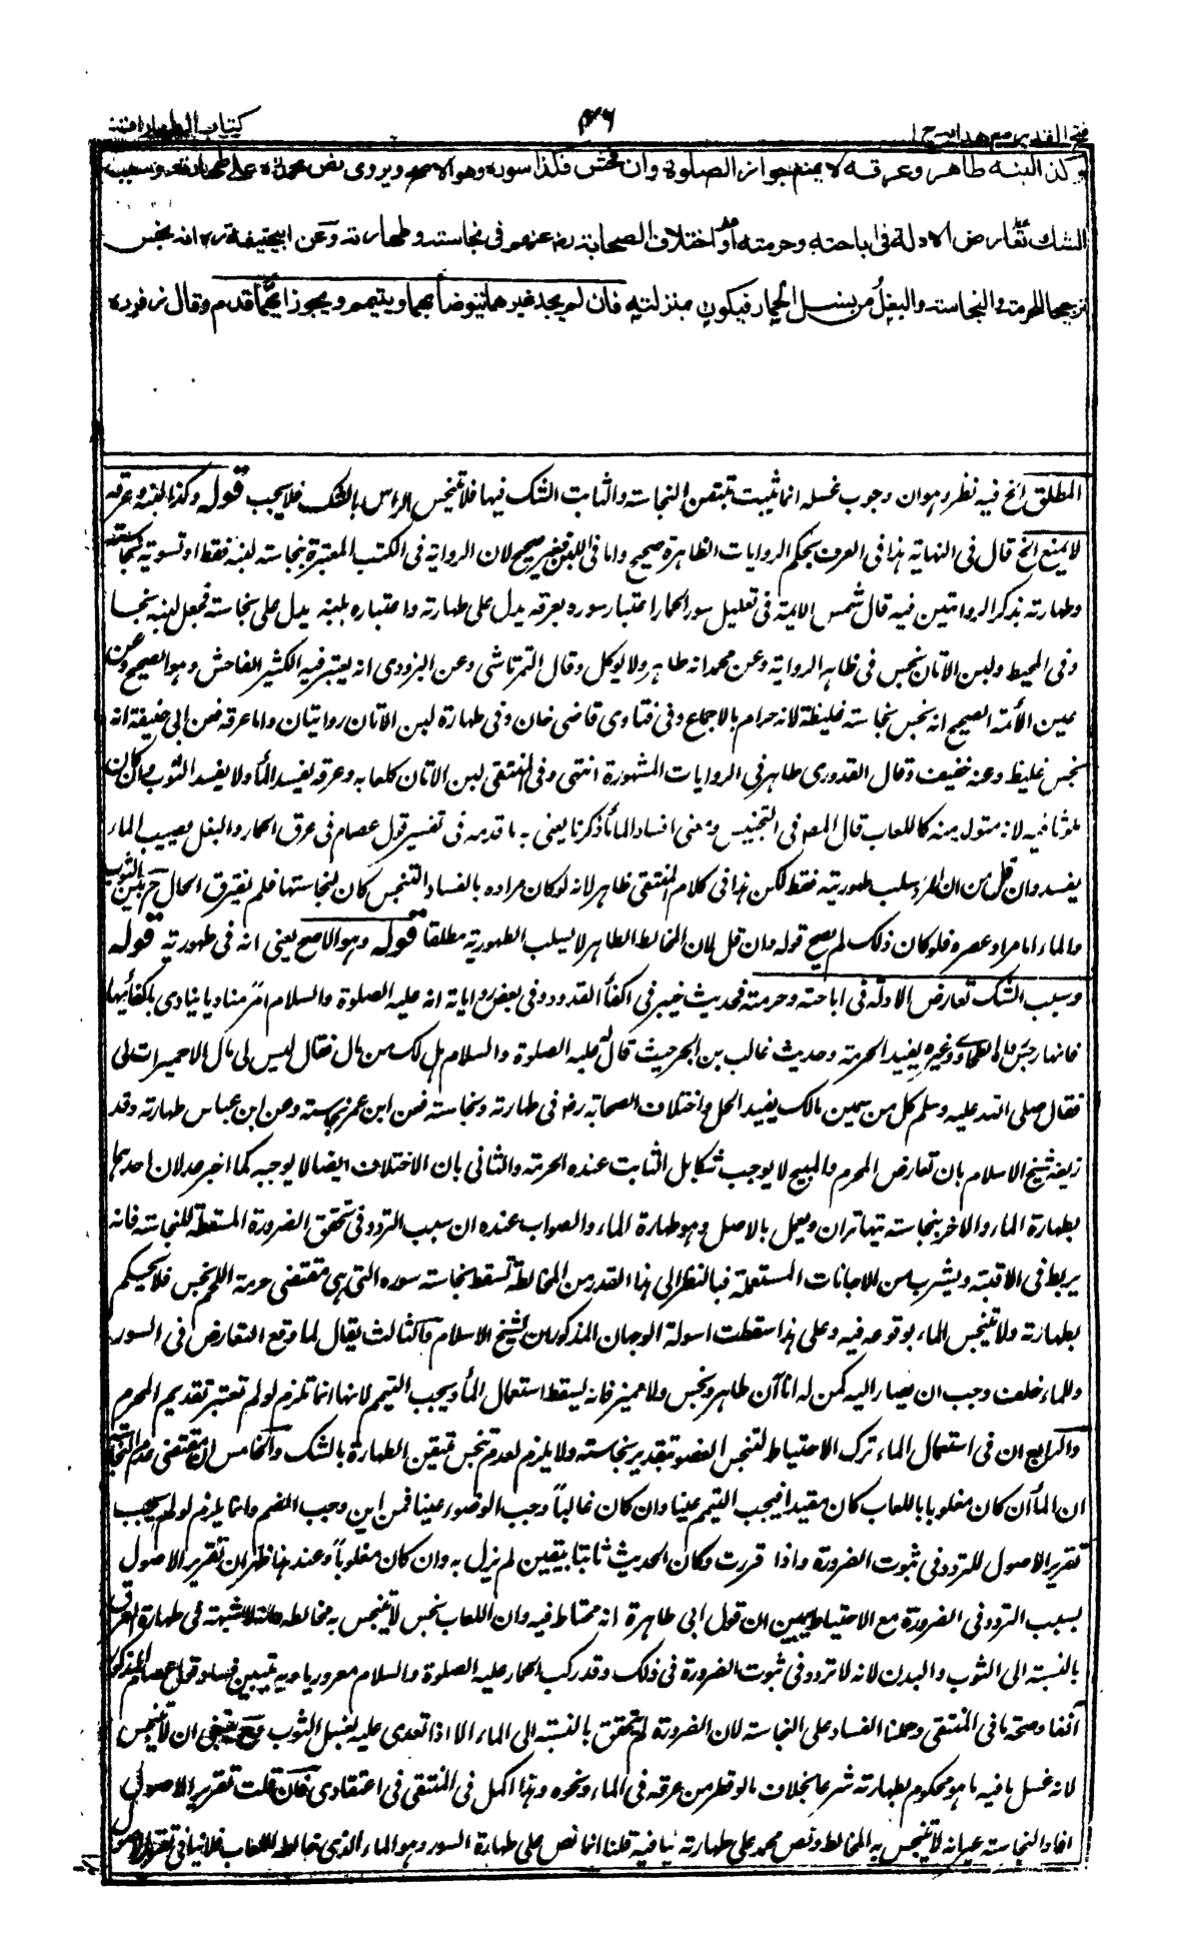 فتح القدير مع هدايه ج ١
٤٦
كتاب الطهارات
وكذا لبنه طاهر وعرقه لا يمنع جواز الصلوة وان فحش فكذا سوره وهو الاصح ويروى نص محمد رح على طهارته وسبب
الشك تعارض الادلة فى اباحته وحرمته او اختلاف الصحابة رض عنهم فى نجاسته وطهارته وعن ابيحنيفة رح انه نجس
ترجيحا للحرمة والنجاسة والبغل من نسل الحمار فيكون بمنزلته فان لم يجد غيرهما يتوضأ بهما ويتيمم ويجوز ايهما قدم وقال زفر رح
المطلق الخ فيه نظر وهو ان وجوب غسله انما يثبت بتيقن النجاسة والثابت الشك فيها فلا يتنجس الراس بالشك فلا يجب قوله وكذا لبنه وعرقه
لا يمنع الخ قال فى النهاية هذا فى العرق بحكم الروايات الظاهرة صحيح واما فى اللبن فغير صحيح لان الرواية فى الكتب المعتبرة بنجاسة لبنه فقط او تسوية نجاسته
وطهارته بذكر الروايتين فيه قال شمس الايمة فى تعليل سور الحمار اعتبار سوره بعرقه يدل على طهارته واعتباره بلبنه يدل على نجاسته فجعل لبنه نجسا
وفى المحيط ولبن الاتان نجس فى ظاهر الرواية وعن محمد انه طاهر ولا يوكل وقال التمرتاشى وعن البزدوى انه يعتبر فيه الكثير الفاحش وهو الصحيح وعن
عين الأئمة الصحيح انه نجس نجاسة غليظة لانه حرام بالاجماع وفى فتاوى قاضى خان وفى طهارة لبن الاتان روايتان واما عرقه فعن ابى حنيفة انه
نجس غليظ وعنه خفيف وقال القدورى طاهر فى الروايات المشهورة انتهى وفى المنتقى لبن الاتان كلعابه وعرقه يفسد الماء ولا يفسد الثوب وان كان
مغموسا فيه لانه متولد منه كاللعاب قال المص فى التجنيس ومعنى افساد الماء ما ذكرنا يعنى به ما قدمه فى تفسير قول عصام فى عرق الحمار والبغل يصيب الماء
يفسد وان قل من ان المراد سلب طهوريته فقط لكن هذا فى كلام المنتقى ظاهر لانه لو كان مراده بالفساد التنجس كان لنجاستها فلم يفترق الحال بين الثوب
والماء اما مراد عصام فلو كان ذلك لم يصح قوله وان قل لان المخالط الطاهر لا يسلب الطهورية مطلقا قوله وهو الاصح يعنى انه فى طهوريته قوله
وسبب الشك تعارض الادلة فى اباحته وحرمته فحديث خيبر فى اكفأ القدور وفى بعض رواياته انه عليه الصلوة والسلام امر مناديا ينادى باكفائها
فانها رجس رواه الطحاوى وغيره يفيد الحرمة وحديث غالب بن ابجر حيث قال له عليه الصلوة والسلام هل لك من مال فقال ليس لى مال الا حميرات لى
فقال صلى الله عليه وسلم كل من سمين مالك يفيد الحل واختلاف الصحابة رض فى طهارته ونجاسته فعن ابن عمر نجاسته وعن ابن عباس طهارته وقد
زيفه شيخ الاسلام بان تعارض المحرم والمبيح لا يوجب شكا بل الثابت عنده الحرمة والثانى بان الاختلاف ايضا لا يوجبه كما اخبر عدلان احدهما
بطهارة الماء والاخر بنجاسته يتهاتران ويعمل بالاصل وهو طهارة الماء والصواب عنده ان سبب التردد فى تحقق الضرورة المسقطة للنجاسة فانه
يربط فى الاقنية ويشرب من الاجانات المستعملة فبالنظر الى هذا القدر من المخالطة تسقط نجاسة سوره التى هى مقتضى حرمة اللحم نجس فلا يحكم
بطهارته ولا تنجيس الماء بوقوعه فيه وعلى هذا سقطت اسولة الوجهان المذكوران لشيخ الاسلام والثالث يقال لما وقع التعارض فى السور
وللماء خلف وجب ان يصار اليه كمن له اناآن طاهر ونجس ولا مميز فانه يسقط استعمال الماء ويجب التيمم لانها انما تلزم لو لم تعتبر تقديم المحرم
والرابع ان فى استعمال الماء ترك الاحتياط لتنجس العضو بتقدير نجاسته ولا يلزم لعدم تنجس متيقن الطهارة بالشك والخامس ان مقتضى عدم النجاسة
ان الماء ان كان مغلوبا باللعاب كان مقيدا فيجب التيمم عينا وان كان غالبا وجب الوضوء عينا فمن اين وجب الضم وانما يلزم لو لم يجب
تقرير الاصول للتردد فى ثبوت الضرورة واذا قررت وكان الحدث ثابتا بيقين لم يزل به وان كان مغلوبا وعند هذا ظهر ان تقرير الاصول
بسبب التردد فى الضرورة مع الاحتياط يبين ان قول ابى طاهرة انه محتاط فيه وان اللعاب نجس لا يتنجس به مخالطه ولا شبهة فى طهارة العرق
بالنسبة الى الثوب والبدن لانه لا تردد فى ثبوت الضرورة فى ذلك وقد ركب الحمار عليه الصلوة والسلام معروريا وبه يتبين فساد قول عصام المذكور
آنفا وصحة ما فى المنتقى وحملنا الفساد على النجاسة لان الضرورة لم تتحقق بالنسبة الى الماء الا اذا تعدى عليه بغسل الثوب ينبغى ان لا يتنجس
لانه غسل ما فيه ما هو محكوم بطهارته شرعا بخلاف ما لو قطر من عرقه فى الماء ونحوه وهذا الحمل فى المنتقى فى اعتقادى فان قلت تقرير الاصول
افاد النجاسة عيانه لا يتنجس به المخالط ونص محمد على طهارته ينافيه قلنا انما نص على طهارة السور وهو الماء الذى خالط اللعاب فلا ينافى تقرير الاصول